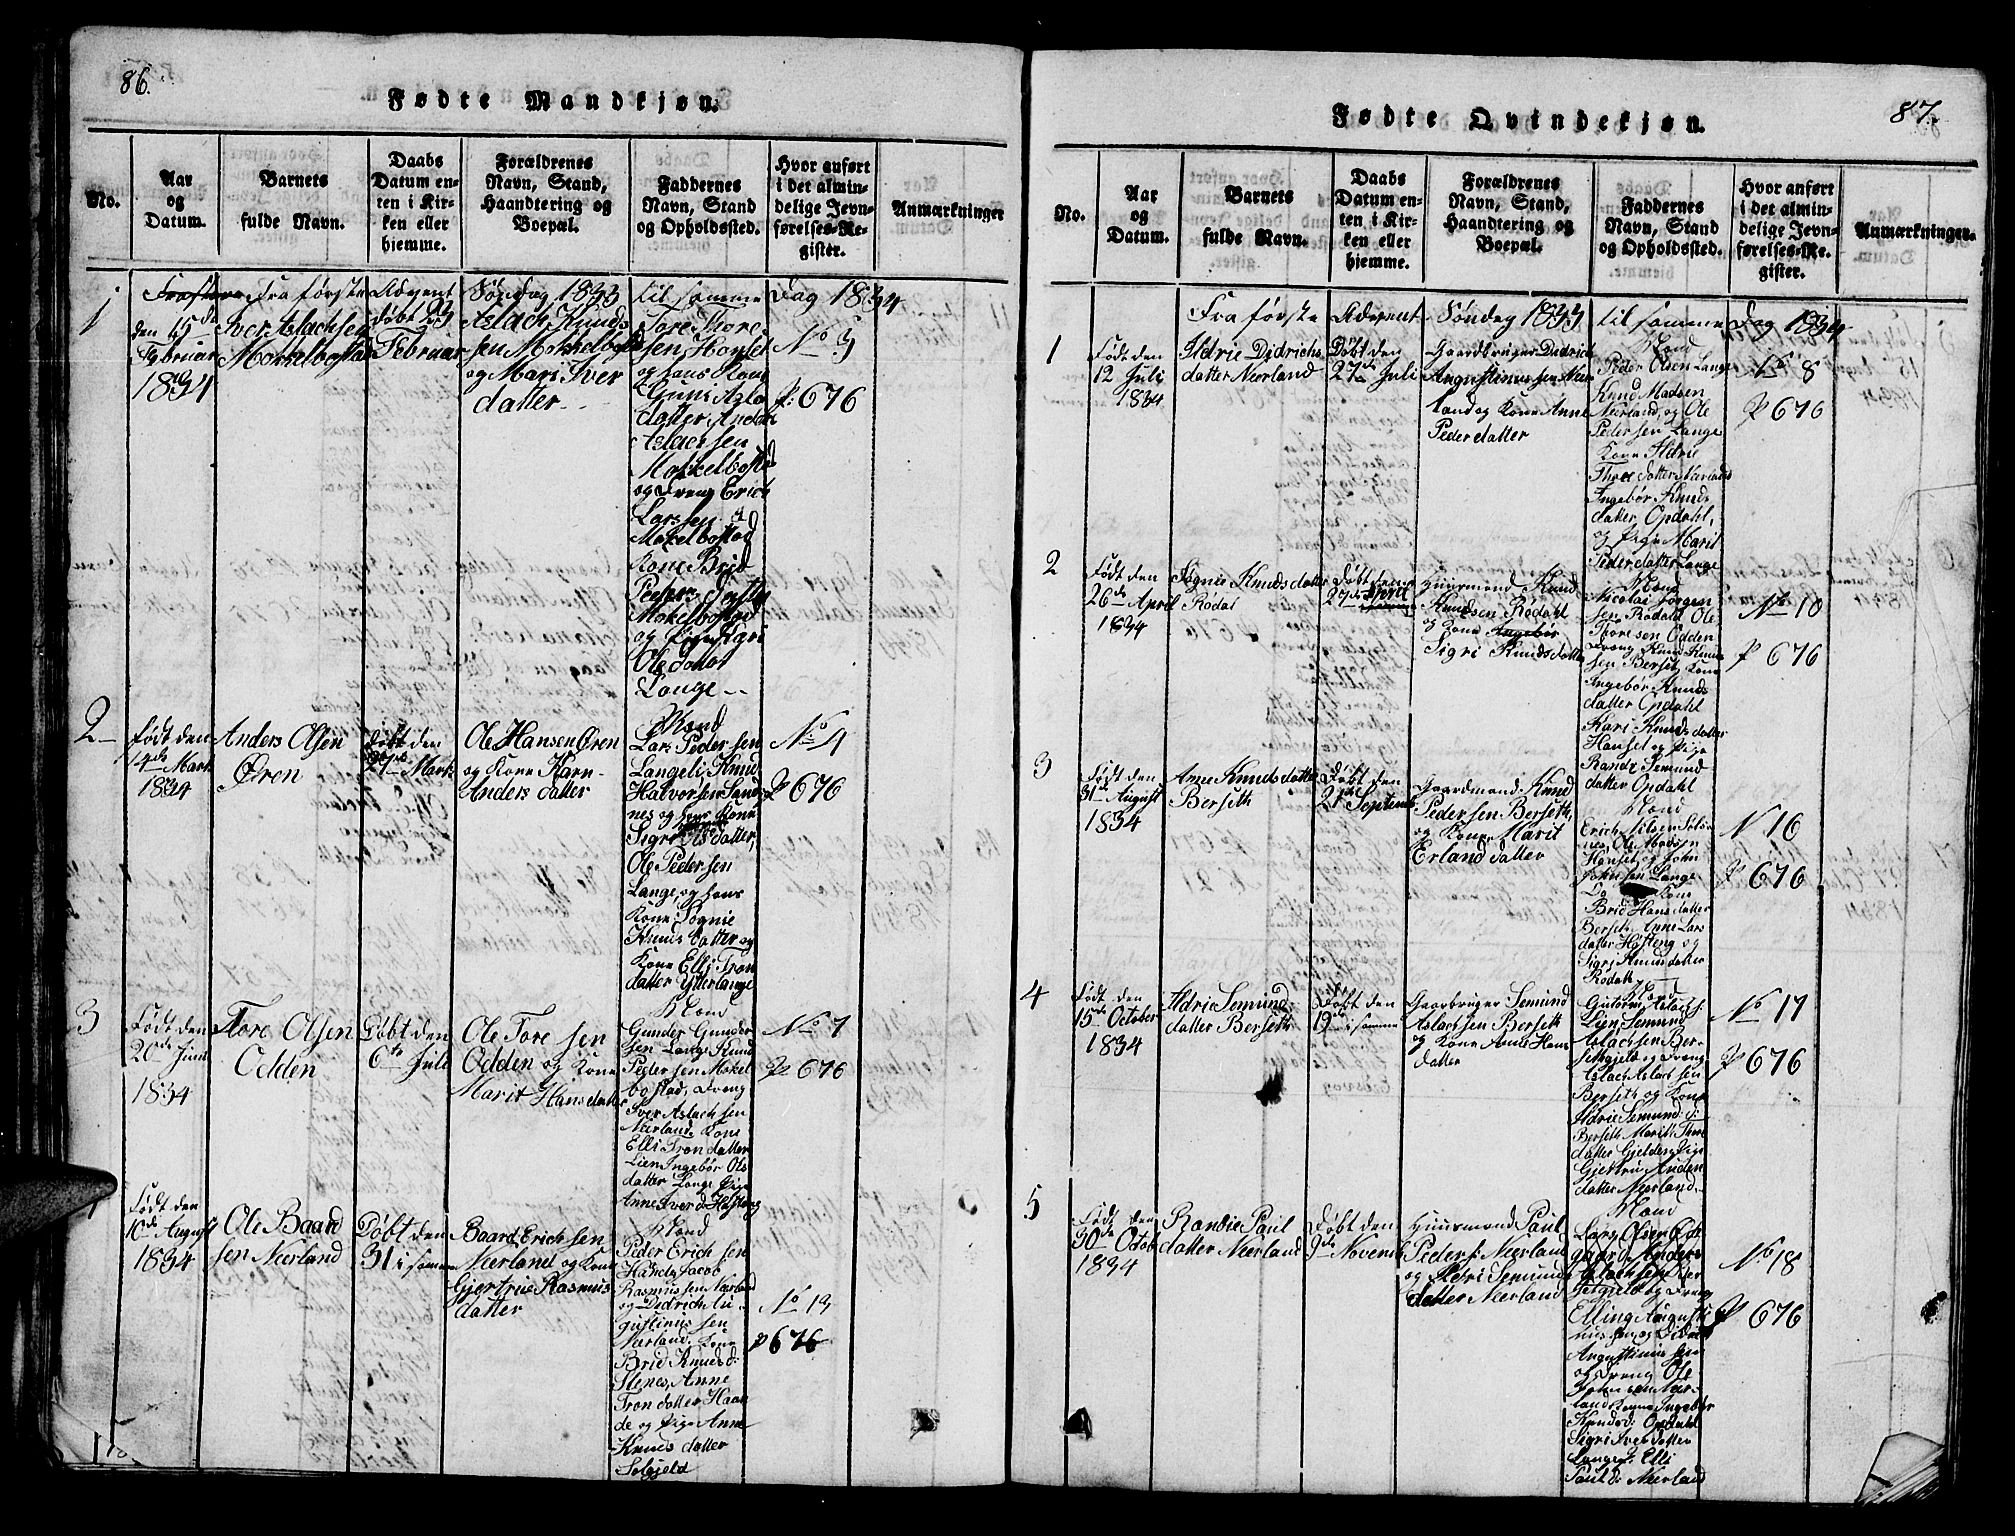 86.
Fødte Mandkjøn.
No.
Aar
og
Datum.
Barnets
fulde Navn.
Daabs
Datum en-
ten i Kir-
ken eller
hjemme.
Forældrenes
Navn, Stand,
Haandtering og
Boepæl.
Faddernes
Navn, Stand
og Opholdssted.
Hvor anført
i det almin-
delige Jevn-
førelses-Re-
gister.
Anmærkninger
Fra første Advent Søndag 1833 til samme Dag 1834
1
den 15de
Februar
1834
Iver Aslachsen
Mokkelbostad
døbt 23
Februar
Aslach Knud
sen Mokkelbost
og Mari Iver
datter
Tore Thore
sen Hanset
og hans Kone
Guni Asla
datter, Anders
Aslachsen
Mokkelbostad
og Dreng Erich
Larssen
Mokelbostad
Kone Brid
Peders
Mokelbostad
og Pige Sigri
Ole datter
Lange
No 3
P: 676
2
Født den
14de Mark
1834
Anders Olsen
Øren
Døbt den
27de Mark
Ole Hansen Øren
og Kone Karn
Anders datter
Mand
Lars Peder sen
Langeli, Knud
Halvorsen Sand
nes og hans Kone
Sigri Ols datter,
Ole Peder sen
Lange, og hans
Kone Søgnie
Knuds datter og
Kone Elli Tron
datter Ytterlange
No 4
P 676
3
Født den
20de Juni
1834
Tore Olsen
Odden
Døbt den
6te Juli
Ole Tore sen
Odden og Kone
Marit Hans datter
Mand
Gunder Gunder
sen Lange Knud
Peder sen Mokel
bostad, Dreng
Iver Aslach sen
Neerland, Kone
Elli Tron datter
Lien Ingebør Ols
datter Lange Pige
Anne Iver d: Høsteng
No 7
P 676
4
Født den
10de August
1834
Ole Baard
sen Neerland
Døbt den
31 i samme
Baard Erich sen
Neerland og Kone
Gjertrue Rasmus
datter
Mand
Peder Erich sen
Hande, Jacob
Rasmus sen Neerland
og Didrich Au-
gustinus sen
Neerland. Kone
Brid Knuds d:
Stenes, Anne
Tron datter Haan
de og Pige Anne
Knuds datter
Solgjeld
No 13
P 676
87.
Fødte Qvindekjøn.
No.
Aar
og
Datum.
Barnets
fulde Navn.
Daabs
Datum en-
ten i Kir-
ken eller
hjemme.
Forældrenes
Navn, Stand,
Haandtering og
Boepæl.
Faddernes
Navn, Stand
og Opholdssted.
Hvor anført
i det almin-
delige Jevn-
førelses-Re-
gister.
Anmærkninger.
Fra første Advent Søndag 1833 til samme Dag 1834
1
Født den
12 Juli
1834
Ildrie Didrichs
datter Neerland
Døbt den
27de Juli
Gaardbruger Didrich
Augustinus sen Neer
land og Kone Anne
Peder datter
Mand
Peder Olsen Lange
Knud Madsen
Neerland, og Ole
Peder sen Lange
Kone Ildrie
Thore datter Neerland
Ingebør Knuds
datter Opdahl,
og Pige Marit
Peder datter Lange
No 8
P 676
2
Født den
26de April
1834
Søgnie Knuds datter
Rødal
Døbt den
27de April
Huusmand Knud
Knudsen Rødahl
og Kone Ingebør
Sigri Knuds datter
Mand
Nicolai Jørgen
sen Rødahl Ole
Thore sen Odden
Dreng Knud Knud
sen Berset, Kone
Ingebør Knuds
datter Opdahl
Kari Knuds datter
Hanset og Pige
Randi Semund
datter Opdahl
No 10
P 676
3
Født den
31de August
1834
Anne Knuds datter
Berseth
Døbt den
21de Septemb
Gaardmand Knud
Peder sen Berseth,
og Kone Marit
Erland datter
Mand
Erich Nilsen Solsø
nes, Ole Madsen
Hanset og John
John sen Lange
Kone
Brid Hans datter
Berseth, Anne Lars
datter Høsteng og
Sigri Knuds datter
Rødahl
No 16
P 676
4
Født den
15de October
1834
Ildrie Semund
datter Berseth
Døbt den
19de i samme
Gaardbruger Semund
Aslach sen Berseth
og Kone Anne Hans
datter
Mand
Gutorm Aslach s.
Lien, Semund
Aslach sen Ber-
seth og Dreng
Aslach Aslach sen
Berseth og Kone
Ildrie Semund d:
Berseth Marith Thor
datter Gjelder, Pige
Gjertru Anders
datter Neerland
No 17
P 676
5
Født den
30de Octob
1834
Randie Paul
datter Neerland
Døbt den
9de Novemb
Huusmand Paul
Peder s: Neerland
og Sigri Semund
datter Neerland
Mand
Lars Olsen
gaard, Anders
Aslach sen
og Dreng
Elling Augusti
nus sen og Didrich
Augustinus sen
og Dreng Ole
John sen Neer-
land Kone Ingebør
Knuds d: Opdahl
Sigri Iver datter
Lange P: Elli
Paul d: Neerland
No 18
P 676